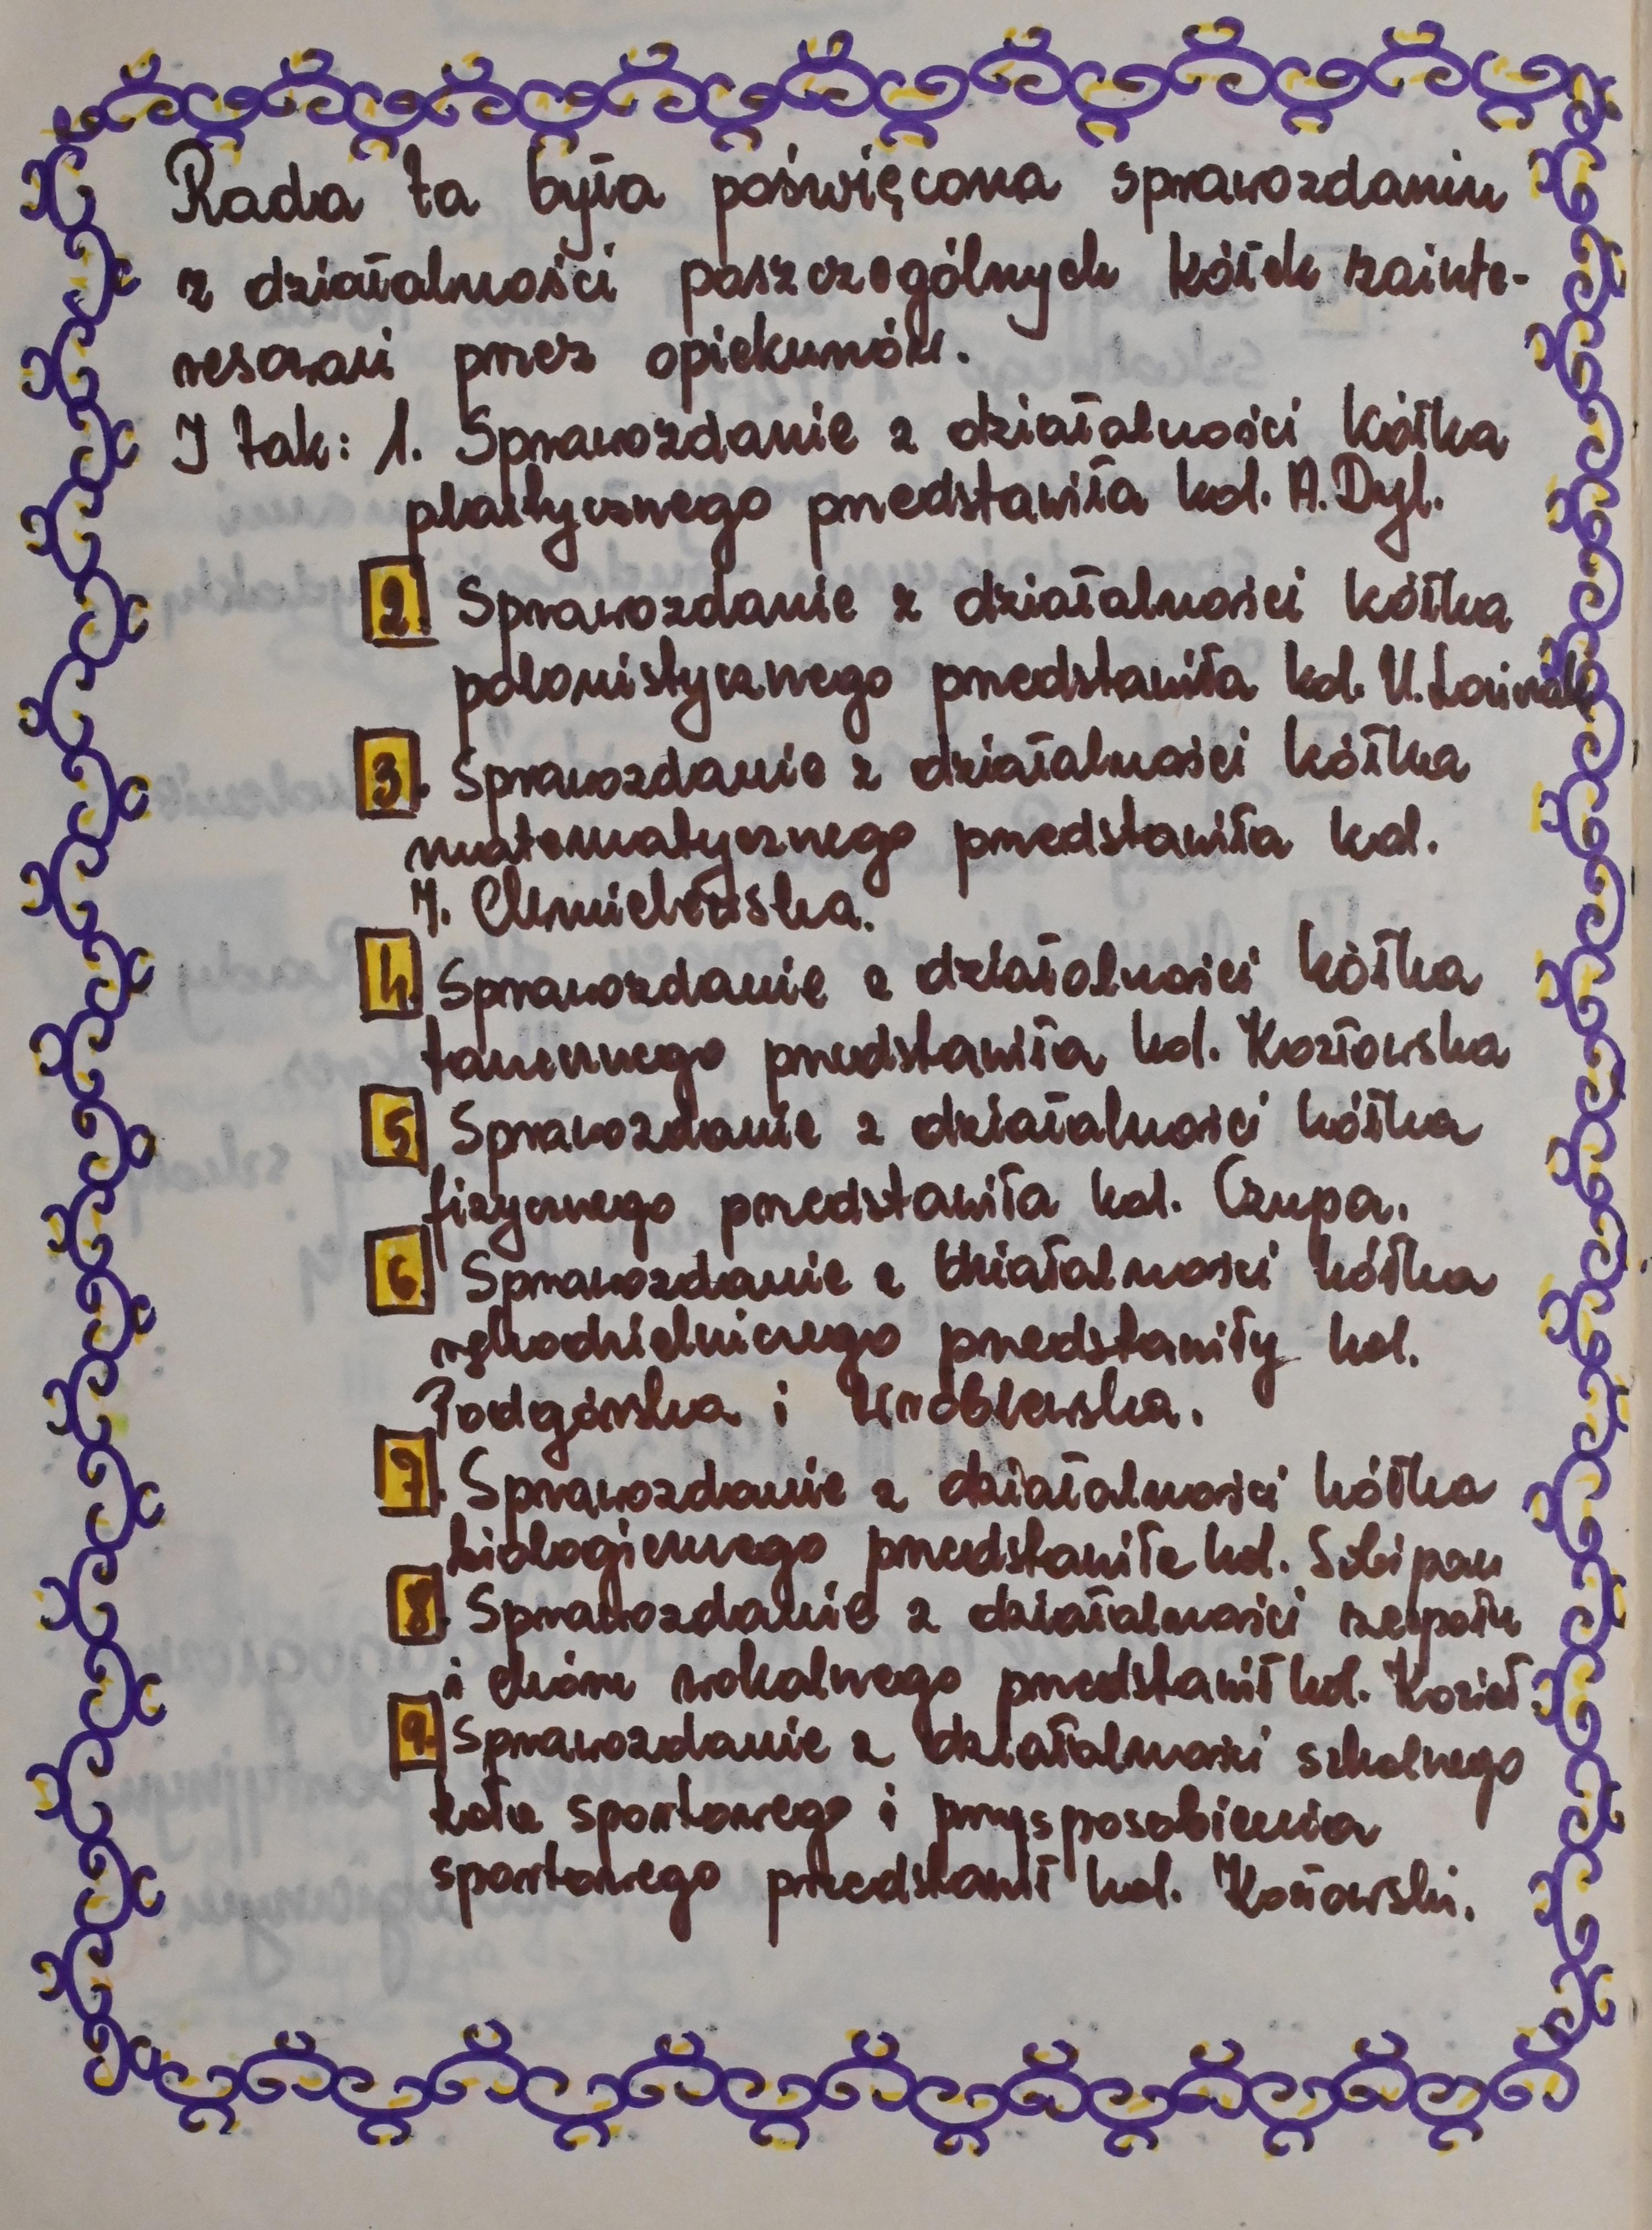 Rada ta była poświęcona sprawozdaniu
z działalności poszczególnych kółek zainte-
resowań przez opiekunów.
I tak: 1. Sprawozdanie z działalności kółka
plastycznego przedstawiła kol. A. Dyl.
2. Sprawozdanie z działalności kółka
polonistycznego przedstawiła kol. U.
3. Sprawozdanie z działalności kółka
matematycznego przedstawiła kol.
J. Chmielewska.
4. Sprawozdanie z działalności kółka
tanecznego przedstawiła kol. Kozłowska
5. Sprawozdanie z działalności kółka
fizycznego przedstawiła kol. Czupa.
6. Sprawozdanie z działalności kółka
rękodzielniczego przedstawiły kol.
Podgórska i Wróblewska.
7. Sprawozdanie z działalności kółka
biologicznego przedstawiła kol.
8. Sprawozdanie z działalności zespołu
i chóru wokalnego przedstawił kol. Kozieł.
9. Sprawozdanie z działalności szkolnego
koła sportowego i przysposobienia
sportowego przedstawił kol.